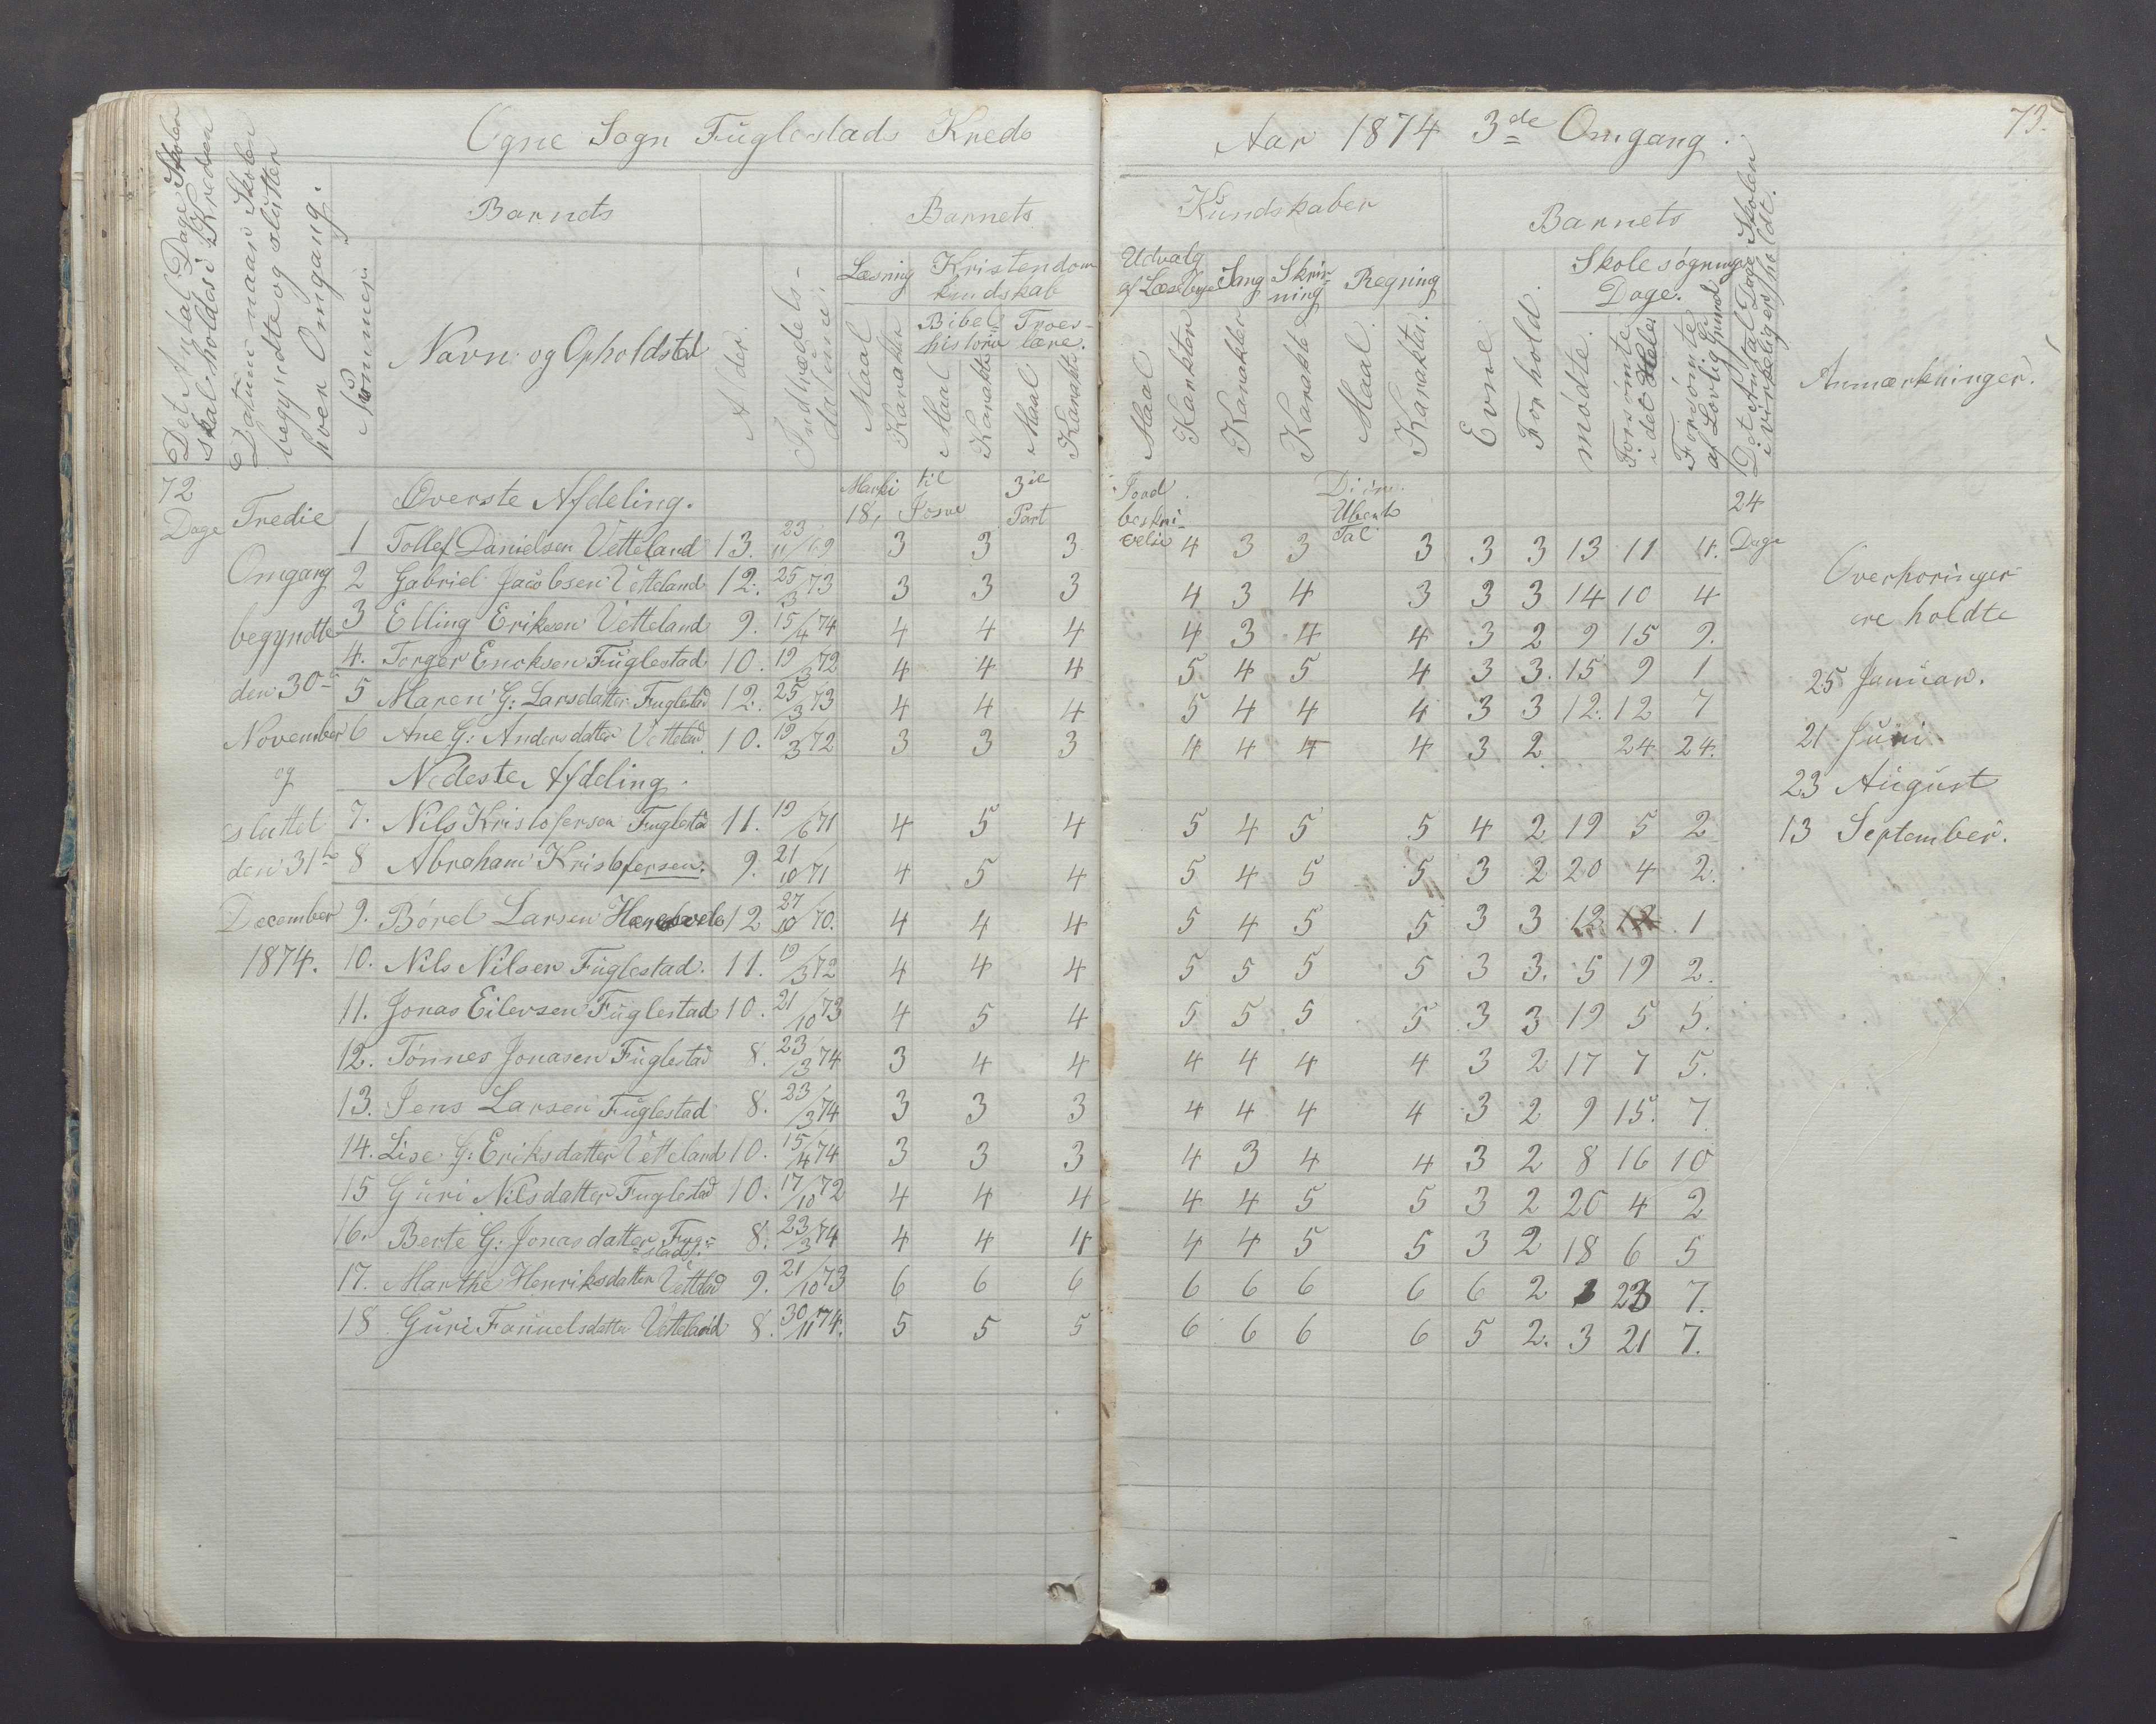 Ogne Sogn Fuglestads Kreds
Aar 1874 3de Omgang.
73.
Det Antal Dage Skolen
skal holdes i Kredsen
Datum naar Skolen
begyndte og sluttet
hver Omgang.
Nummer
Barnets
Navn og Opholdsted
Alder.
Indtrædels-
datum.
Barnets
Læsning
Maal
Karakter
Kristendoms
kundskab
Bibel
historie
Maal
Karakter
Troes-
lære.
Maal
Karakter
Kundskaber
Udvalg
af Læsebogen
Maal
Karakter
Sang
Karakter
Skriv-
ning
Karakter
Regning
Maal.
Karakter.
Barnets
Evne
Forhold.
Skolesøgnings
Dage.
mødte.
Forsømte
i det Hele
Forsømte
af Lovlig Grund
Det Antal Dage Skolen
virkelig er holdt.
Anmærkninger.
72
Dage
Tredie
Omgang
begyndte
den 30te
November
og
sluttet
den 31te
December
1874.
Overste Afdeling.
til
Josue
3die
Part
24
Dage
1 Tollef Danielsen Vetteland 13. 23/11 69 3 3 3 4 3 3 3 3 3 13 11 4.
2 Gabriel Jacobsen Vetteland 12. 25/3 73 3 3 3 4 3 4 3 3 3 14 10 4
3 Elling Eriksen Vetteland 9. 15/4 74 4 4 4 4 3 4 4 3 2 9 15 9.
4. Torger Enoksen Fuglestad 10. 19/3 72 4 4 4 5 4 5 4 3 3. 15 9 1
5 Maren G: Larsdatter Fuglestad 12. 25/3 73 4 4 4 5 4 4 4 3 3 12. 12 7
6 Ane G: Andersdatter Vetteland 10. 19/3 72 3 3 3 4 4 4 4 3 2 24 24.
Nedeste Afdeling.
7. Nils Kristofersen Fuglestad 11. 19/6 71 4 5 4 5 4 5 5 4 2 19 5 2
8 Abraham Kristofersen. 9. 21/10 71 4 5 4 5 4 5 5 3 2 20 4 2.
9. Børel Larsen 12 27/10 70. 4 4 4 5 4 5 5 3 3 12 12 1
10. Nils Nilsen Fuglestad. 11. 19/3 72 4 4 4 5 5 5 5 3 3. 5 19 2.
11. Jonas Eilersen Fuglestad 10. 21/10 73 4 5 4 5 5 5 5 3 3 19 5 5.
12. Tønnes Jonasen Fuglestad 8. 23/3 74 3 4 4 4 4 4 4 3 2 17 7 5.
13. Jens Larsen Fuglestad 8. 23/3 74 3 3 3 4 4 4 4 3 2 9 15. 7
14. Lise G: Eriksdatter Vetteland 10. 15/4 74 3 3 3 4 3 4 4 3 2 8 16 10
15 Guri Nilsdatter Fuglestad 10. 17/10 72 4 4 4 4 4 5 5 3 2 20 4 2
16. Berte G: Jonasdatter Fugle-
stad. 8. 23/3 74 4 4 4 4 4 5 5 3 2 18 6 5
17. Marthe Henriksdatter Vetteland 9. 21/10 73 6 6 6 6 6 6 6 6 2 1 23 7.
18 Guri Fanuelsdatter Vetteland 8. 30/11 74. 5 5 5 6 6 6 6 5 2. 3 21 7.
Overhoringer
ere holdte
25 Januar.
21 Juni
23 August
13 September.